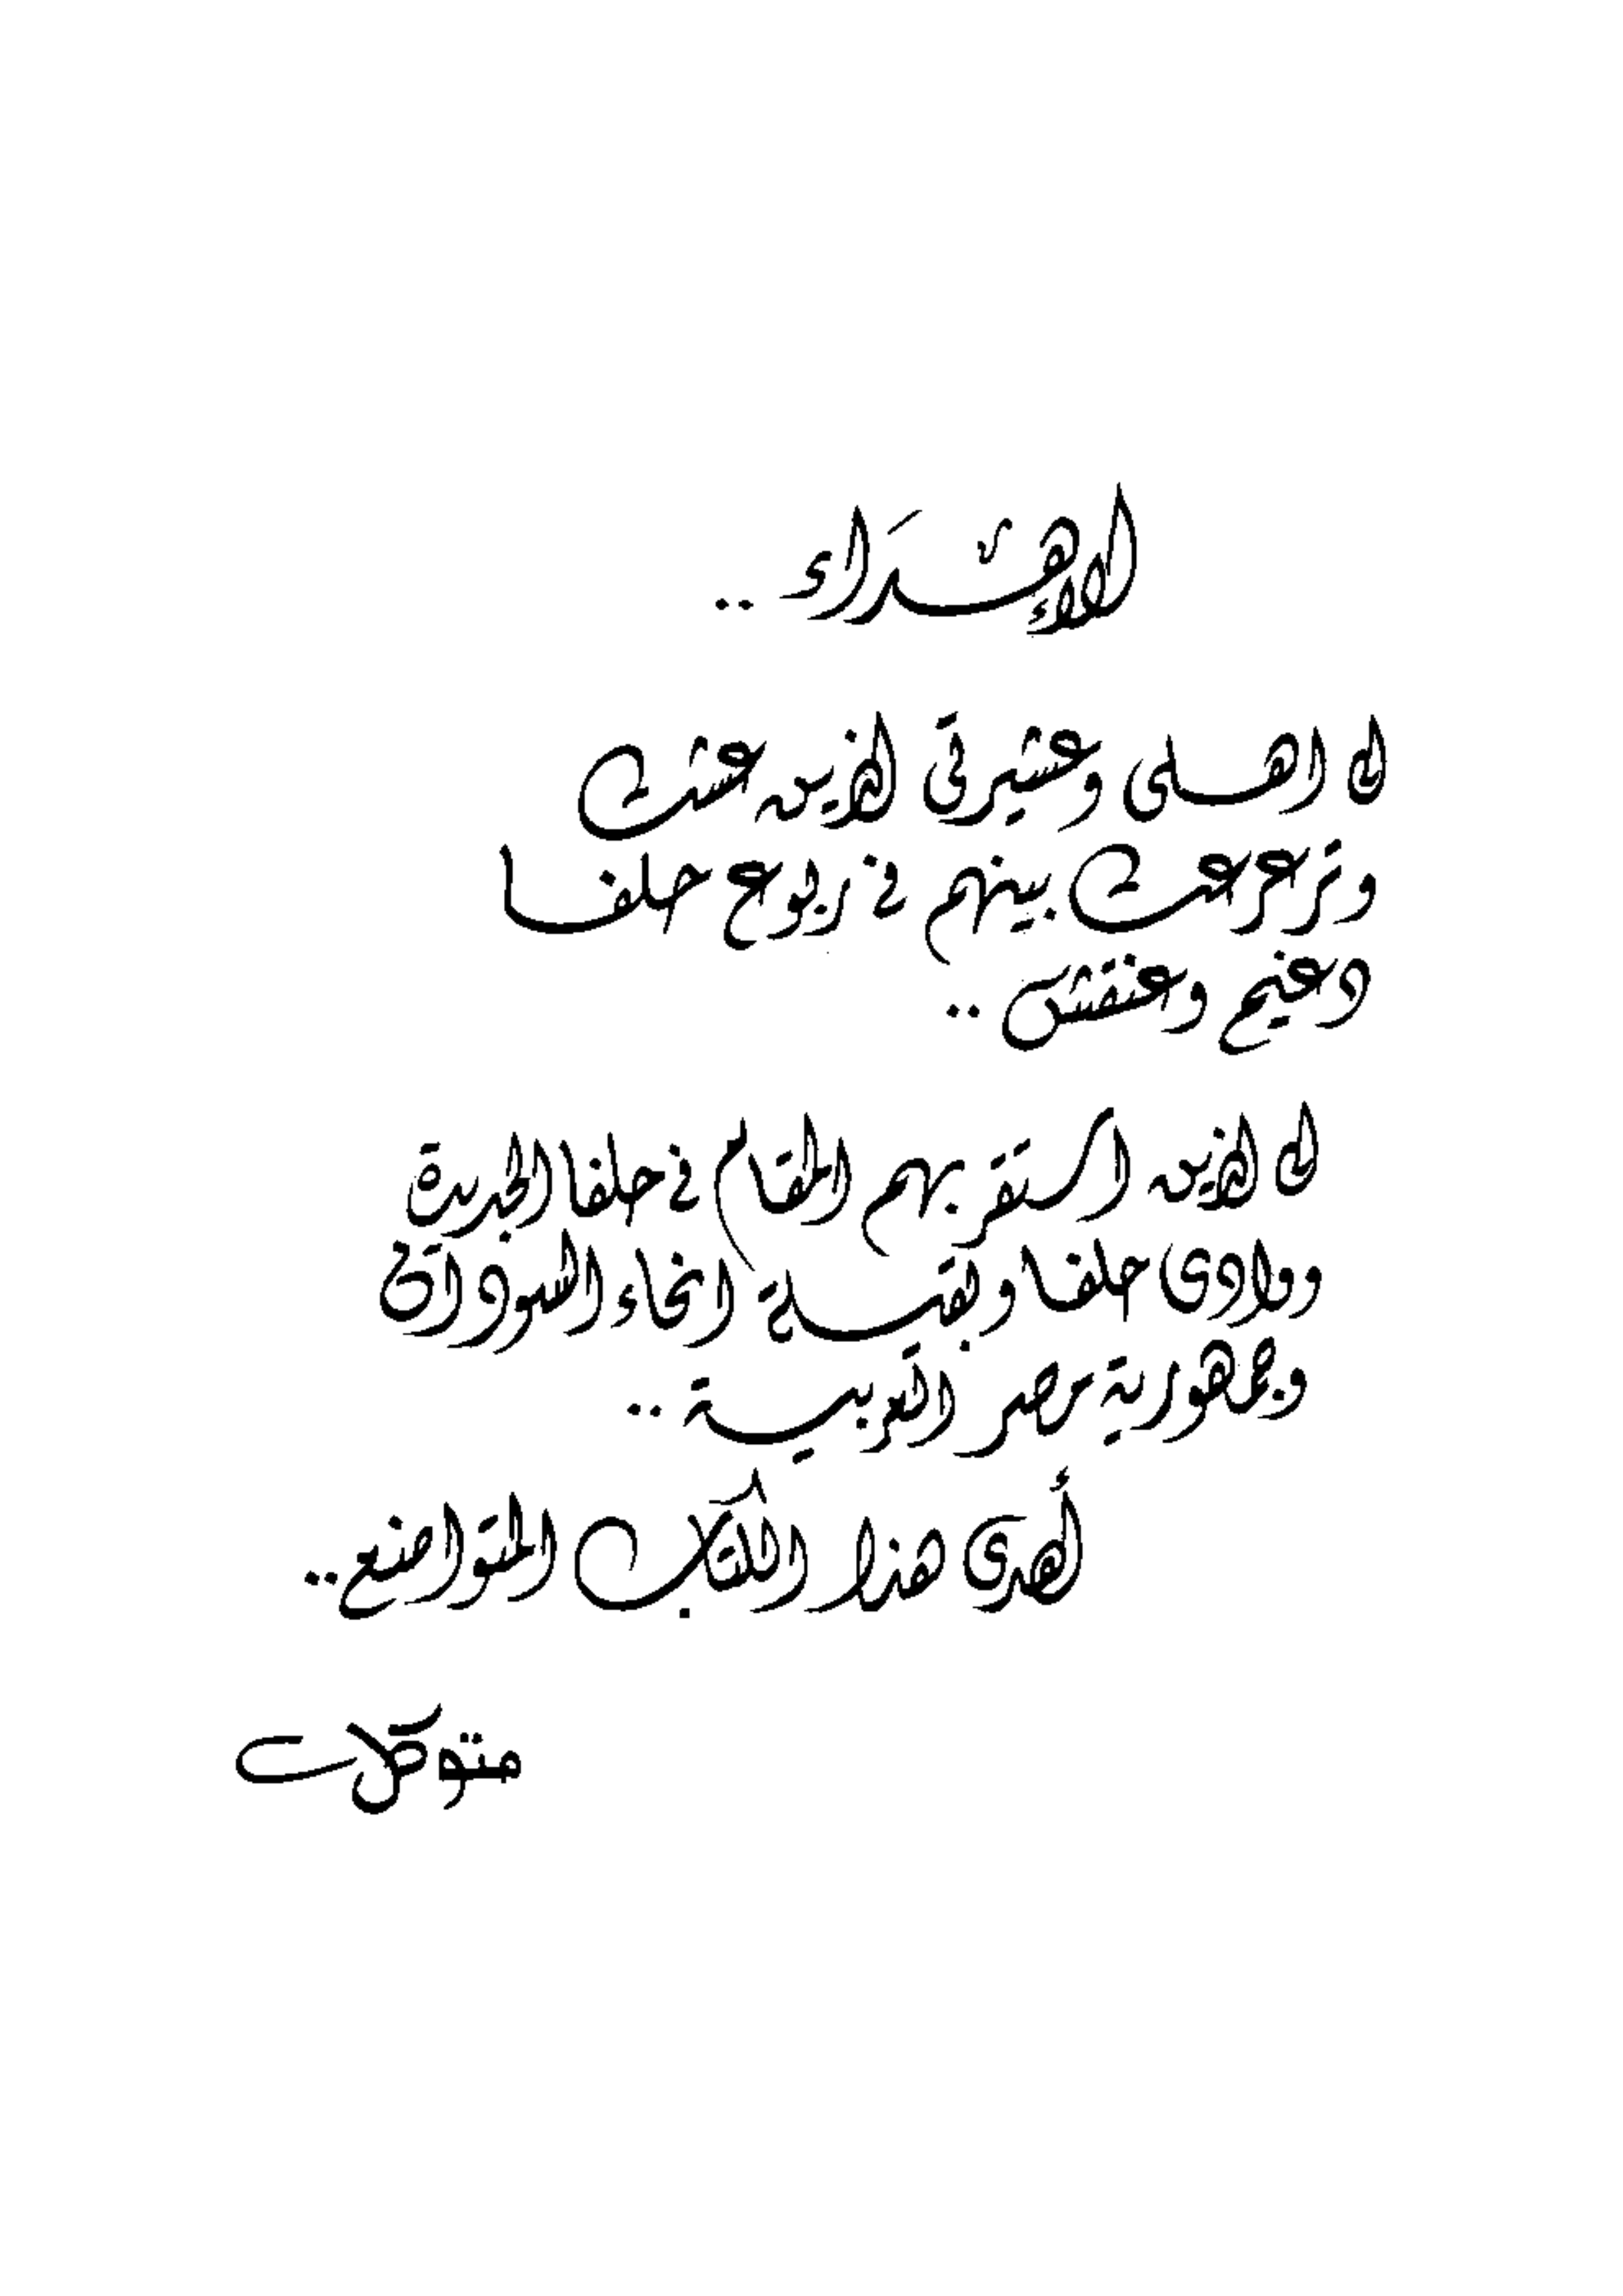 الإهداء ..
إلى اهلى وعشيرتى الذين عشت
وترعرعت بينهم فى ربوع حلفا
دغيم وعنقش ..
إلى الذين استقر بهم المقام فى حلفا الجديدة
ووادى حلفا وبقية انحاء السودان
وجمهورية مصر العربية ..
أهدى هذا الكتاب المتواضع ..
متوكل